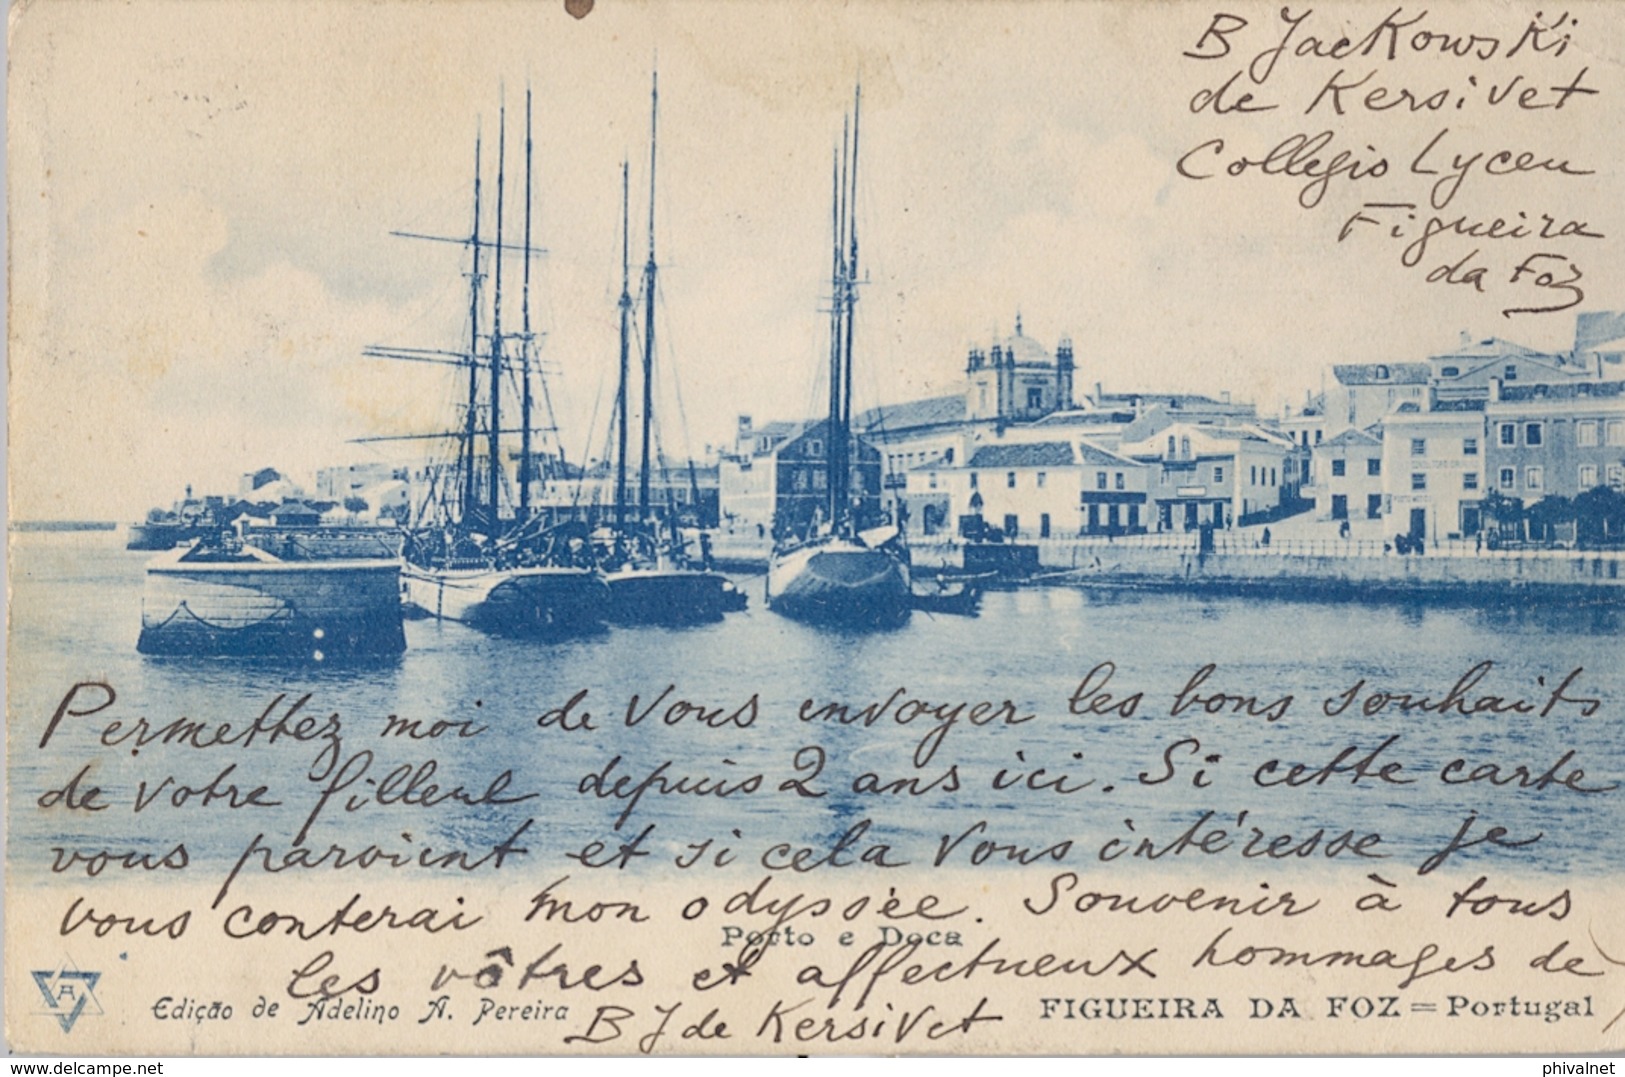 B Jackowski
de Kersivet
Collegio Lyceu
Figueira
da Foz
Permettez moi de vous envoyer les bons souhaits
de votre filleul depuis 2 ans ici. Si cette carte
vous parvient et si cela vous intéresse je
vous conterai mon odyssée. Souvenir à tous
les vôtres et affectueux hommages de
B J de Kersivet
Porto e Doca
A
Edição de Adelino A. Pereira
FIGUEIRA DA FOZ = Portugal
www.delcampe.net
phivalnet